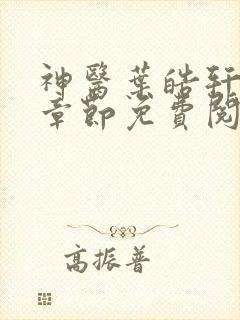 神醫葉皓軒
章節免費閱
高振普